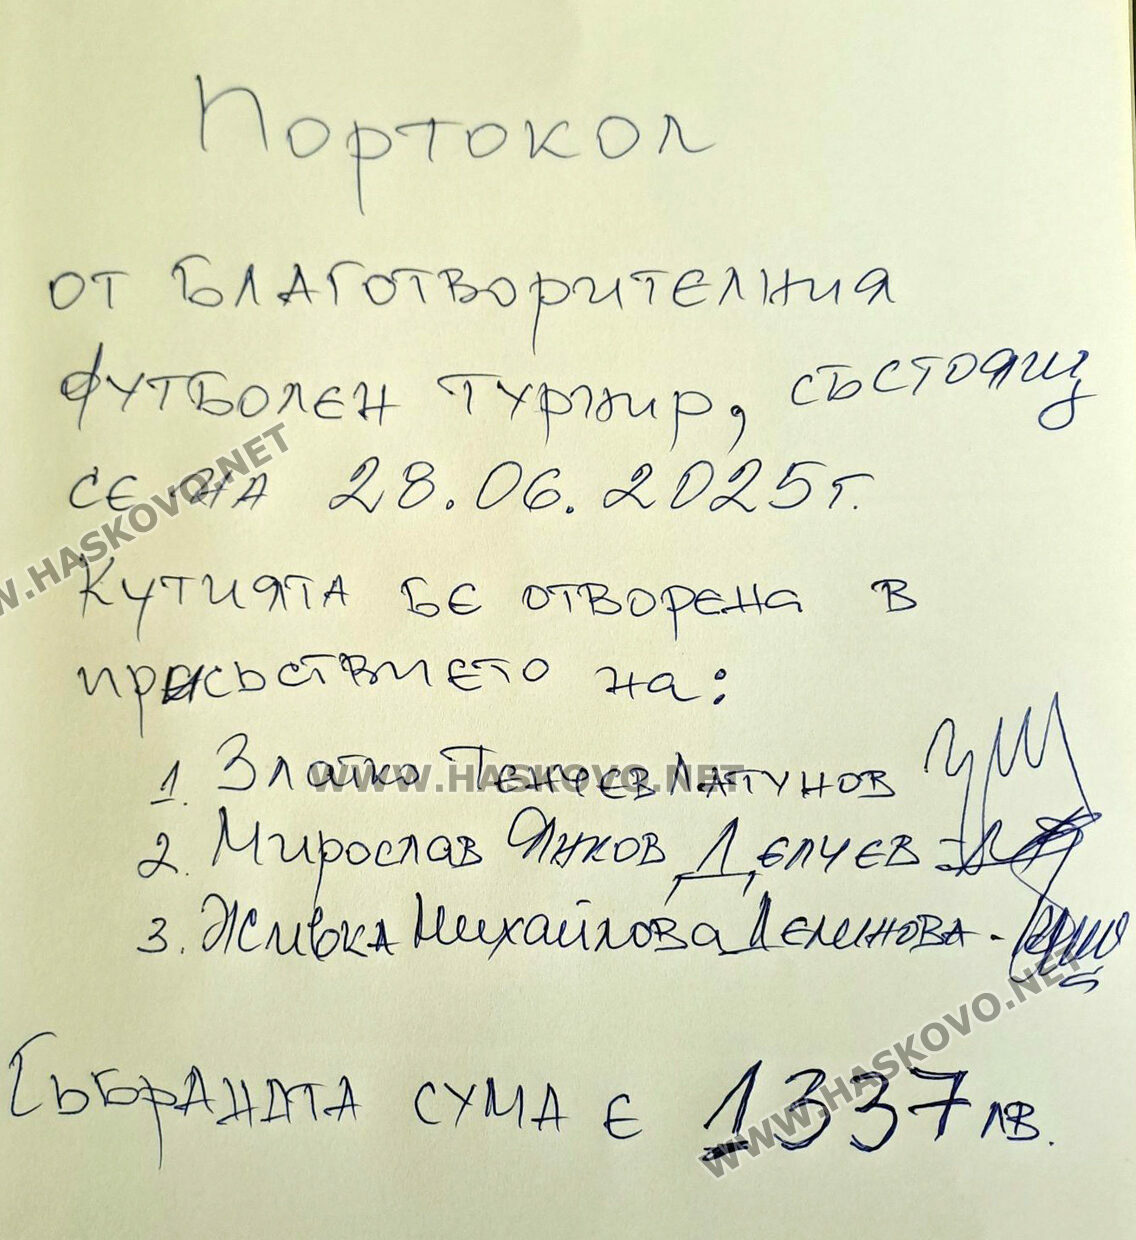 Портокол
от Благотворителния
футболен турнир, състоящ
се на 28.06.2025г.
WWW.HASKOVO.NET
Кутията бе отворена в
присъствието на:
1. Златко Пенчев Латунов
WWW.HASKOVO.NET
2. Мирослав Янков Делчев
3. Живка Михайлова Делинова -
WWW.HASKOVO.NET
Събраната сума е 1337 лв.